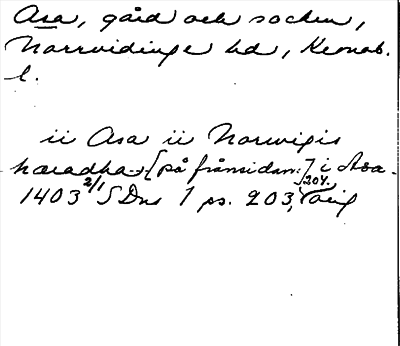 Asa, gård och socken,
Norrvidinge hd, Kronob.
l.
ii Asa ii Norwigis
haradha. [på frånsidan:] i Asa.
1403 2/1 SDns 1 ps. 203, 204, orig